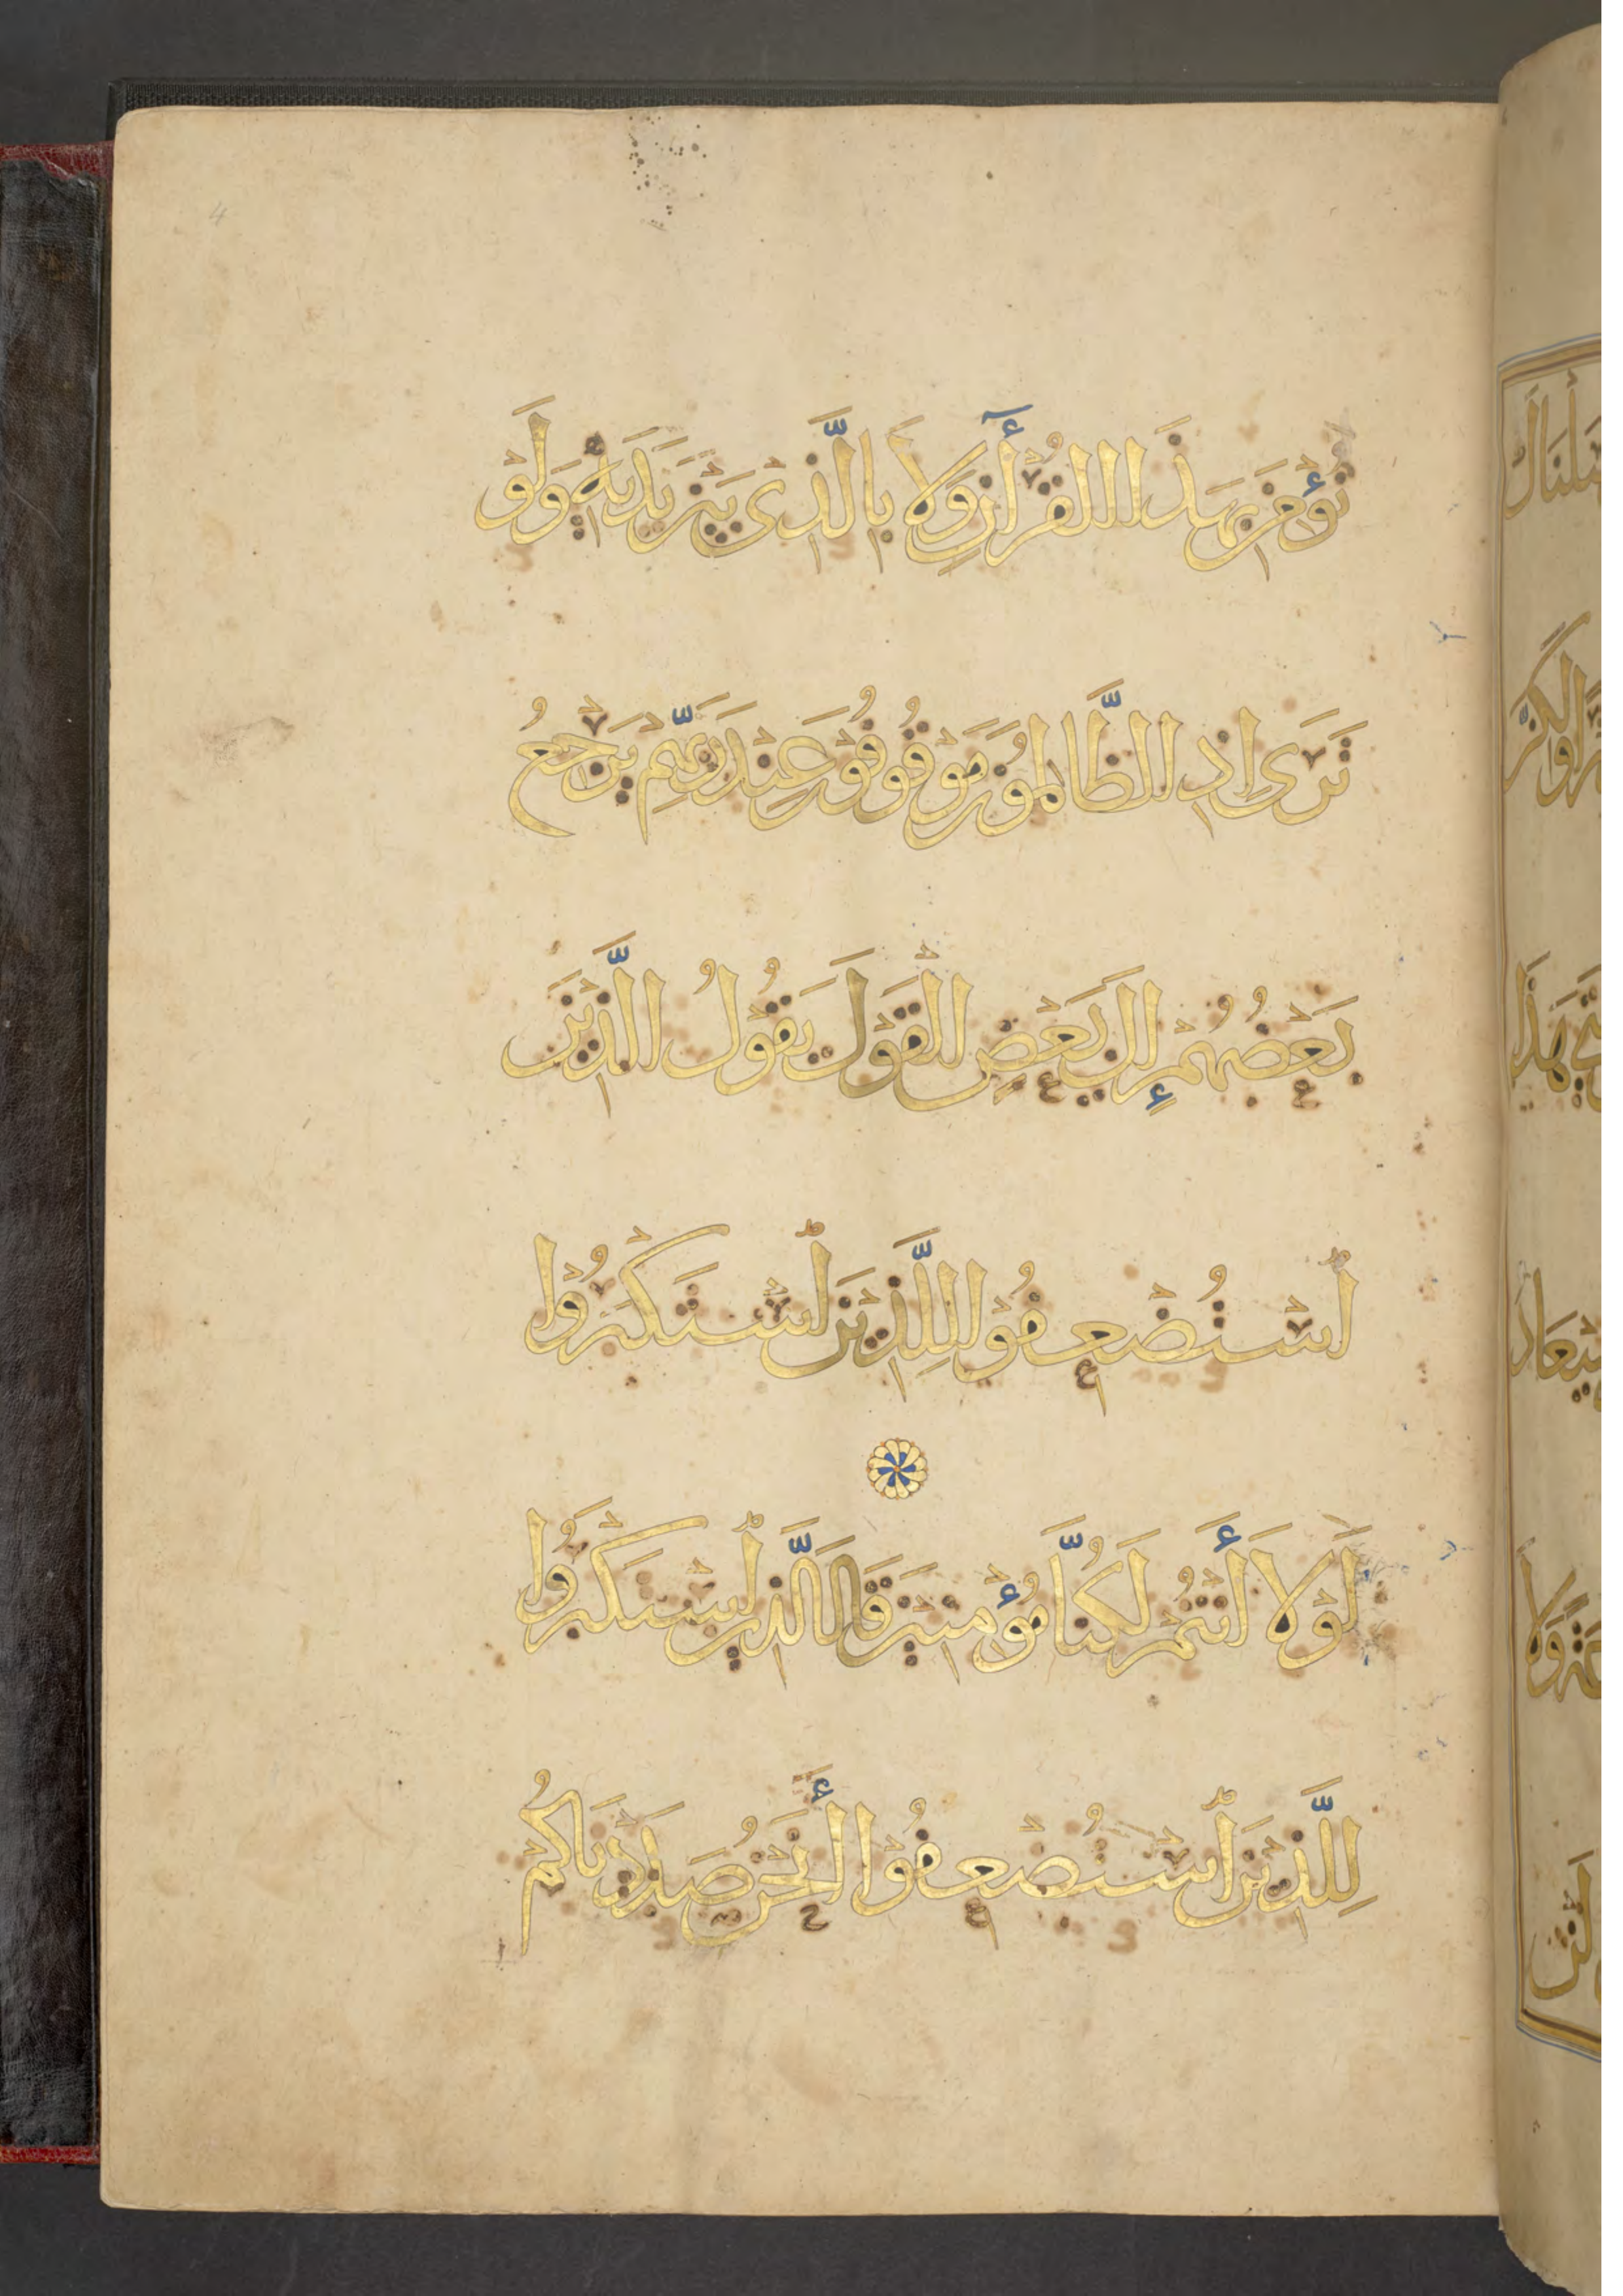 نُؤْمِنَ بِهَذَا الْقُرْأَنِ وَلَا بِالَّذِي بَيْنَ يَدَيْهِ وَلَوْ
تَرَى إِذِ الظَّالِمُونَ مَوْقُوفُونَ عِنْدَ رَبِّهِمْ يَرْجِعُ
بَعْضُهُمْ إِلَى بَعْضٍ الْقَوْلَ يَقُولُ الَّذِينَ
اسْتُضْعِفُوا لِلَّذِينَ اسْتَكْبَرُوا
لَوْلَا أَنْتُمْ لَكُنَّا مُؤْمِنِينَ قَالَ الَّذِينَ اسْتَكْبَرُوا
لِلَّذِينَ اسْتُضْعِفُوا أَنَحْنُ صَدَدْنَاكُمْ
4